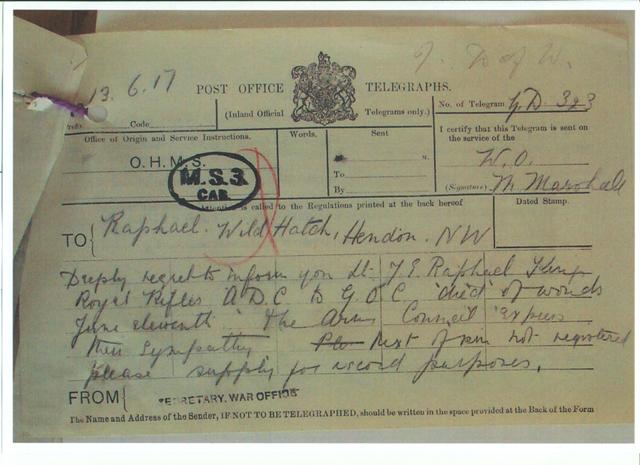 T. D of W.
13.6.17
POST OFFICE TELEGRAPHS.
(Inland Official Telegrams only.)
No. of Telegram Y.D. 323
Code
Office of Origin and Service Instructions.
Words.
Sent
I certify that this Telegram is sent on
the service of the
O.H.M.S.
M.
W.O.
M.S.3.
CAS.
To
By
(Signature) M Marshall
Attention is called to the Regulations printed at the back hereof
Dated Stamp.
TO Raphael. Wild Hatch, Hendon. NW
Deeply regret to inform you Lt. J. E. Raphael Kings
Royal Rifles A.D.C to G.O.C died of wounds
June eleventh. The Army Council express
their sympathy Next of kin not registered
please supply for record purposes.
FROM SECRETARY, WAR OFFICE
The Name and Address of the Sender, IF NOT TO BE TELEGRAPHED, should be written in the space provided at the Back of the Form